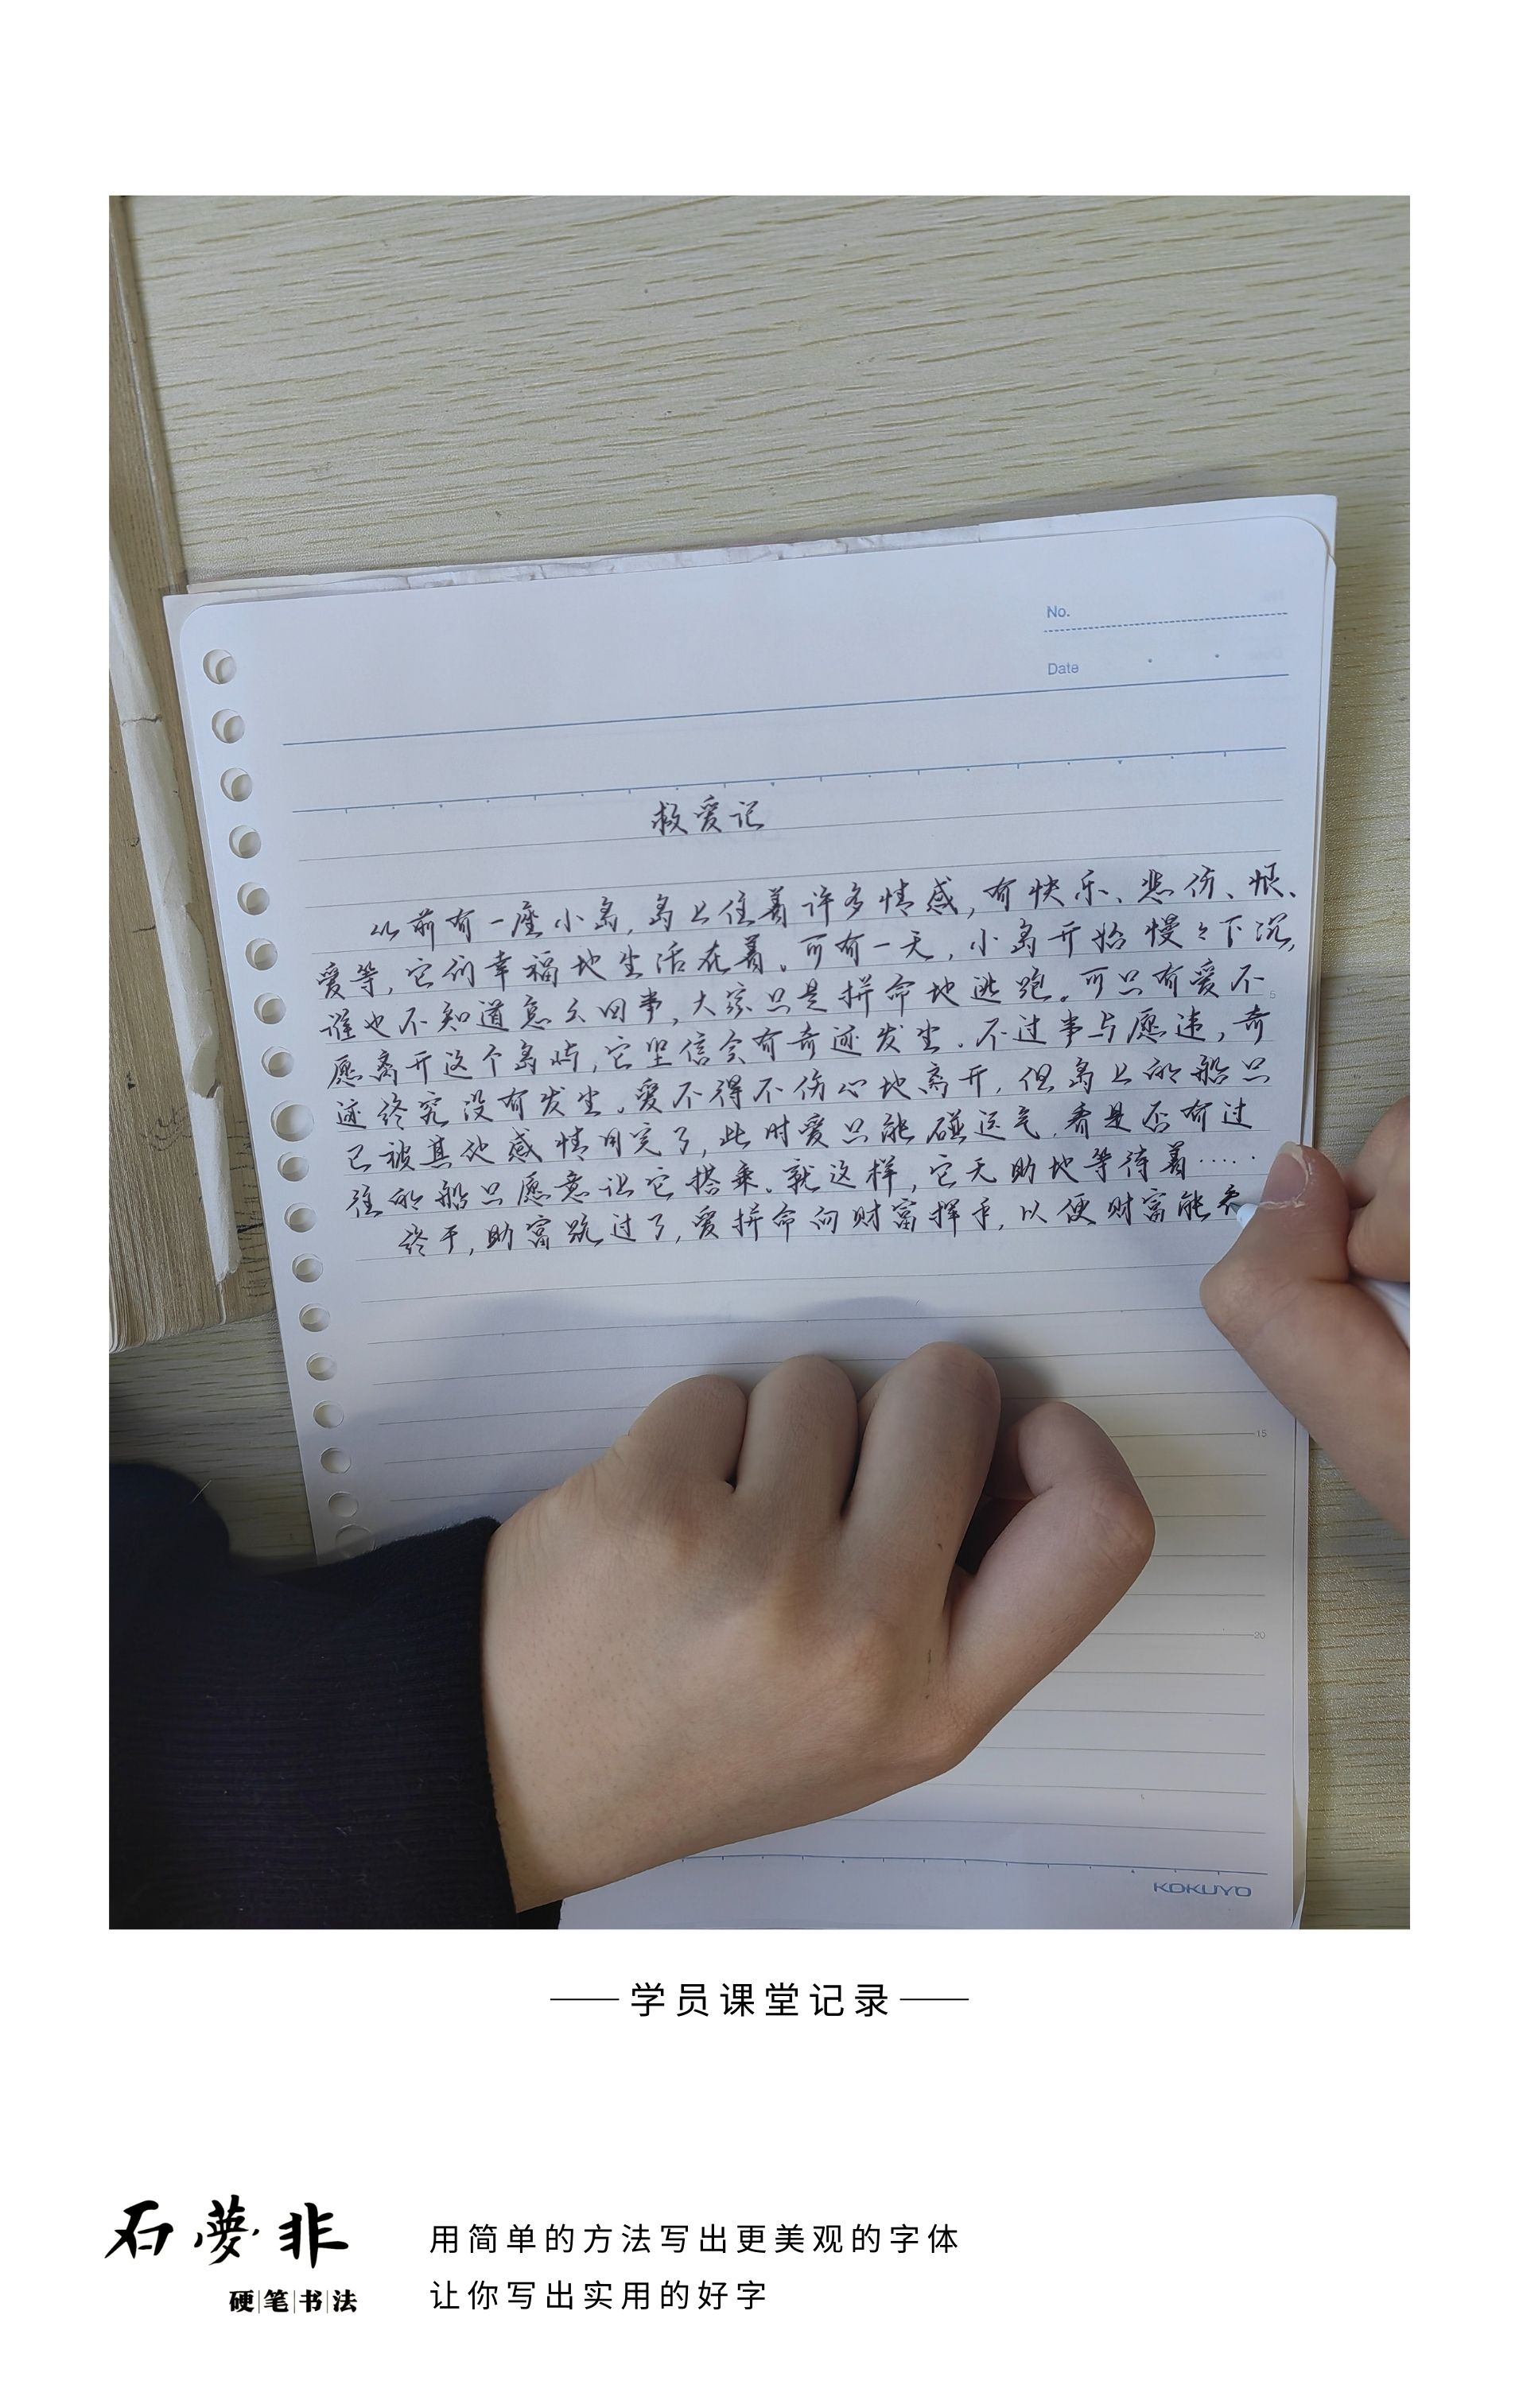 No.
Date
救爱记
以前有一座小岛,岛上住着许多情感,有快乐、悲伤、恨、
爱等,它们幸福地生活在着。可有一天,小岛开始慢々下沉,
谁也不知道怎么回事,大家只是拼命地逃跑。可只有爱不
愿离开这个岛屿,它坚信会有奇迹发生。不过事与愿违,奇
迹终究没有发生。爱不得不伤心地离开,但岛上的船只
已被其他感情用完了,此时爱只能碰运气,看是否有过
往的船只愿意让它搭乘。就这样,它无助地等待着……
终于,助富跑过了,爱拼命向财富挥手,以便财富能
5
15
20
KOKUYO
学员课堂记录
石夢非
硬笔书法
用简单的方法写出更美观的字体
让你写出实用的好字